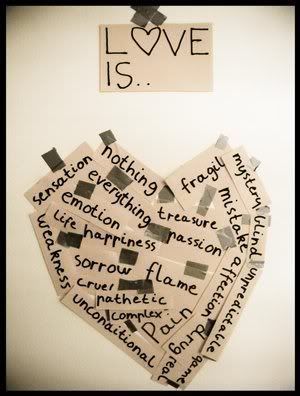 L♡VE
IS..
sensation
nothing
everything
emotion
treasure
fragil
mystery
blind
life
happiness
passion
mistake
affection
unpredictable
weakness
sorrow
flame
cruel
pathetic
complex
unconditional
Pain
drug
real
game